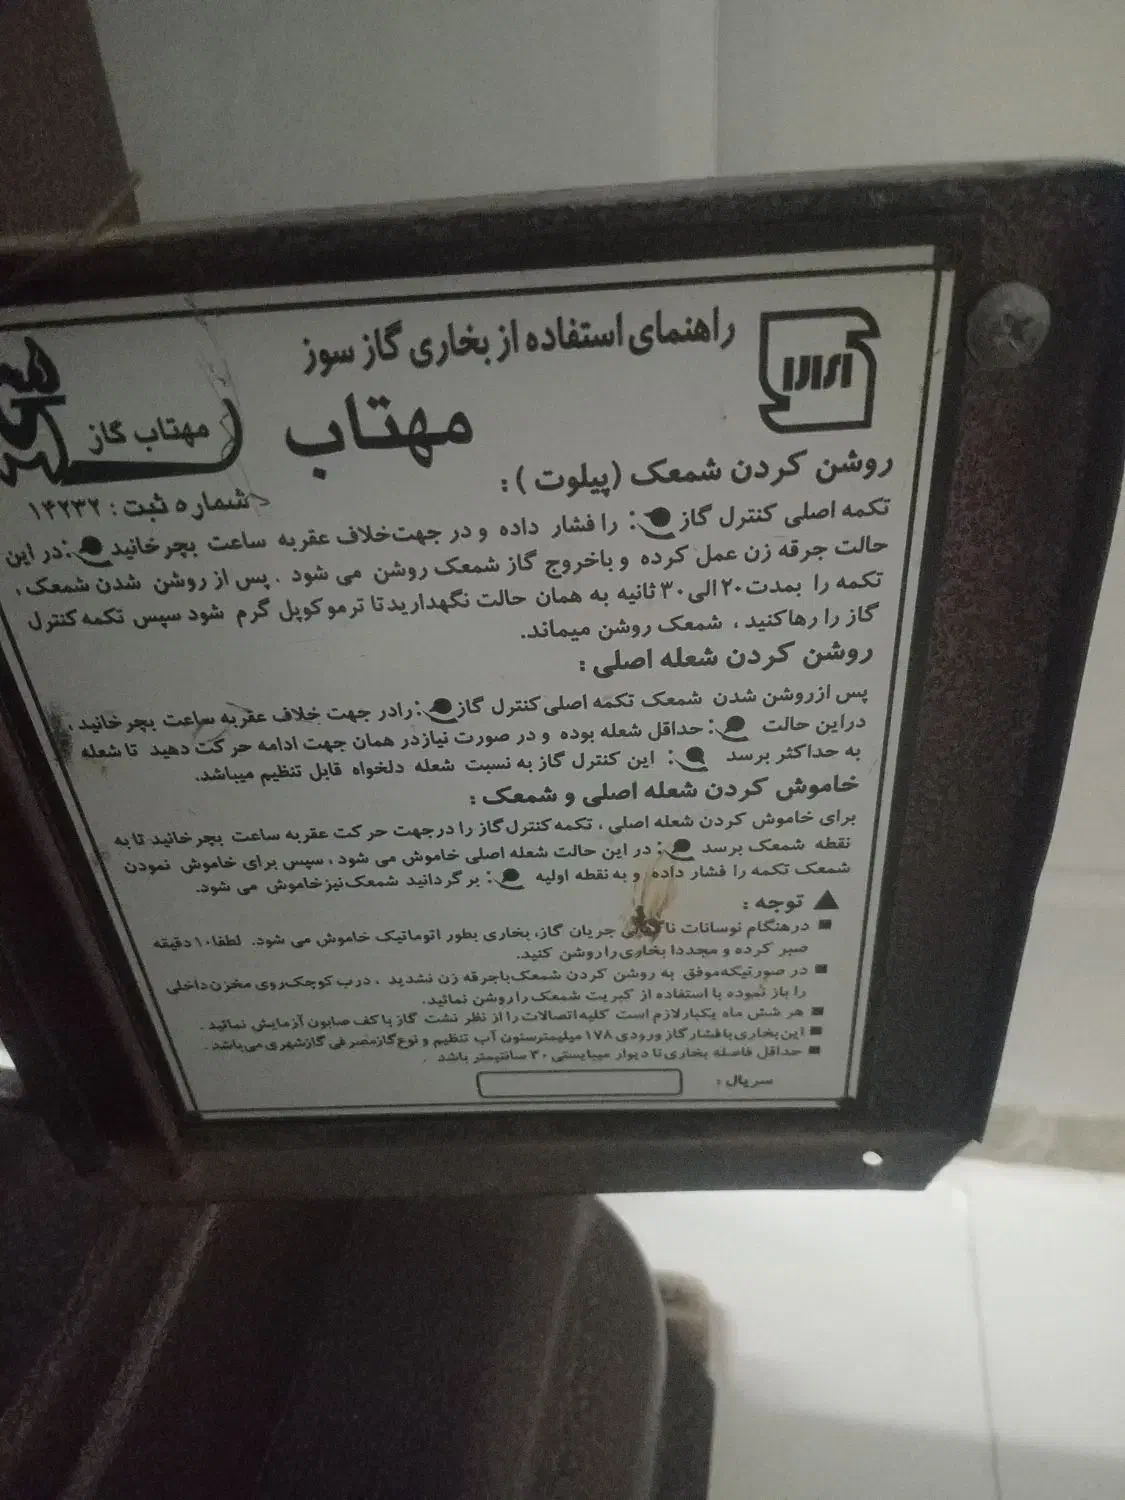 راهنمای استفاده از بخاری گاز سوز
مهتاب
مهتاب گاز
شماره ثبت : ۱۴۲۳۲
روشن کردن شمعک (پیلوت) :
تکمه اصلی کنترل گاز : را فشار داده و در جهت خلاف عقربه ساعت بچرخانید : در این
حالت جرقه زن عمل کرده و با خروج گاز شمعک روشن می شود . پس از روشن شدن شمعک ،
تکمه را بمدت ۲۰ الی ۳۰ ثانیه به همان حالت نگهدارید تا ترموکوپل گرم شود سپس تکمه کنترل
گاز را رها کنید ، شمعک روشن میماند.
روشن کردن شعله اصلی :
پس از روشن شدن شمعک تکمه اصلی کنترل گاز : را در جهت خلاف عقربه ساعت بچرخانید ،
در این حالت : حداقل شعله بوده و در صورت نیاز در همان جهت ادامه حرکت دهید تا شعله
به حداکثر برسد : این کنترل گاز به نسبت شعله دلخواه قابل تنظیم میباشد.
خاموش کردن شعله اصلی و شمعک :
برای خاموش کردن شعله اصلی ، تکمه کنترل گاز را در جهت حرکت عقربه ساعت بچرخانید تا به
نقطه شمعک برسد : در این حالت شعله اصلی خاموش می شود ، سپس برای خاموش نمودن
شمعک تکمه را فشار داده و به نقطه اولیه : برگردانید شمعک نیز خاموش می شود.
توجه :
در هنگام نوسانات جریان گاز، بخاری بطور اتوماتیک خاموش می شود. لطفا ۱۰ دقیقه
صبر کرده و مجددا بخاری را روشن کنید.
در صورتیکه موفق به روشن کردن شمعک با جرقه زن نشدید ، درب کوچک روی مخزن داخلی
را باز نموده با استفاده از کبریت شمعک را روشن نمائید.
هر شش ماه یکبار لازم است کلیه اتصالات را از نظر نشت گاز با کف صابون آزمایش نمائید .
این بخاری با فشار گاز ورودی ۱۷۸ میلیمتر ستون آب تنظیم و نوع گاز مصرفی گاز شهری می باشد .
حداقل فاصله بخاری تا دیوار میبایستی ۳۰ سانتیمتر باشد .
سریال :